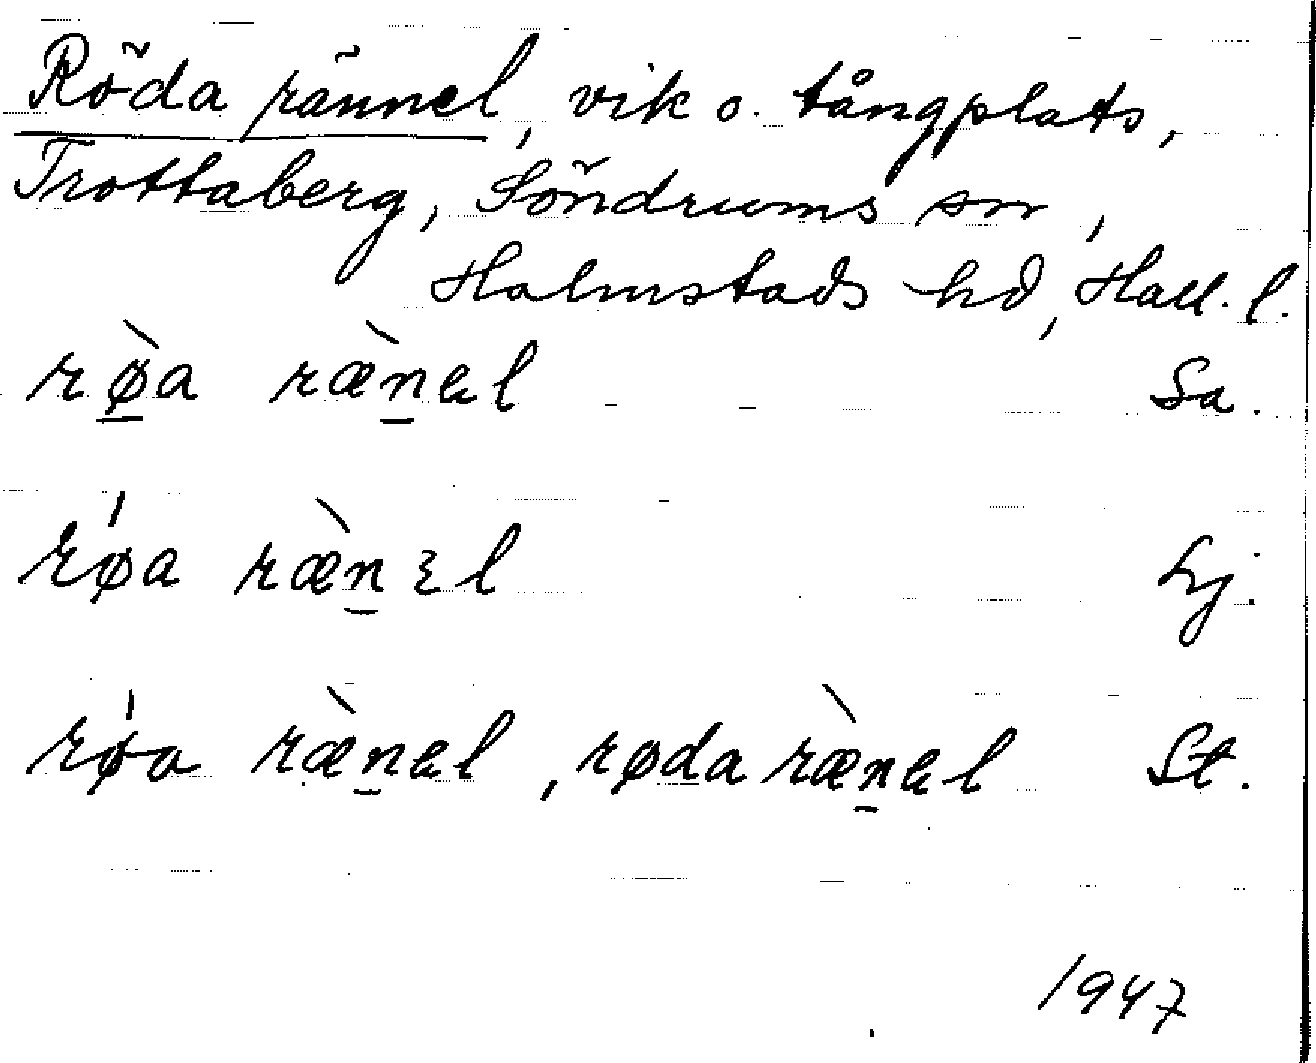 Röda rännel, vik o. tångplats,
Trottaberg, Söndrums sn,
Halmstads hd, Hall. l.
rø̠̀a ræ̀n̠ɐl Sa.
rǿa ræ̀n̠ɛl Lj.
rǿa ræ̀n̠ɐl, røda ræ̀n̠ɐl St.
1947